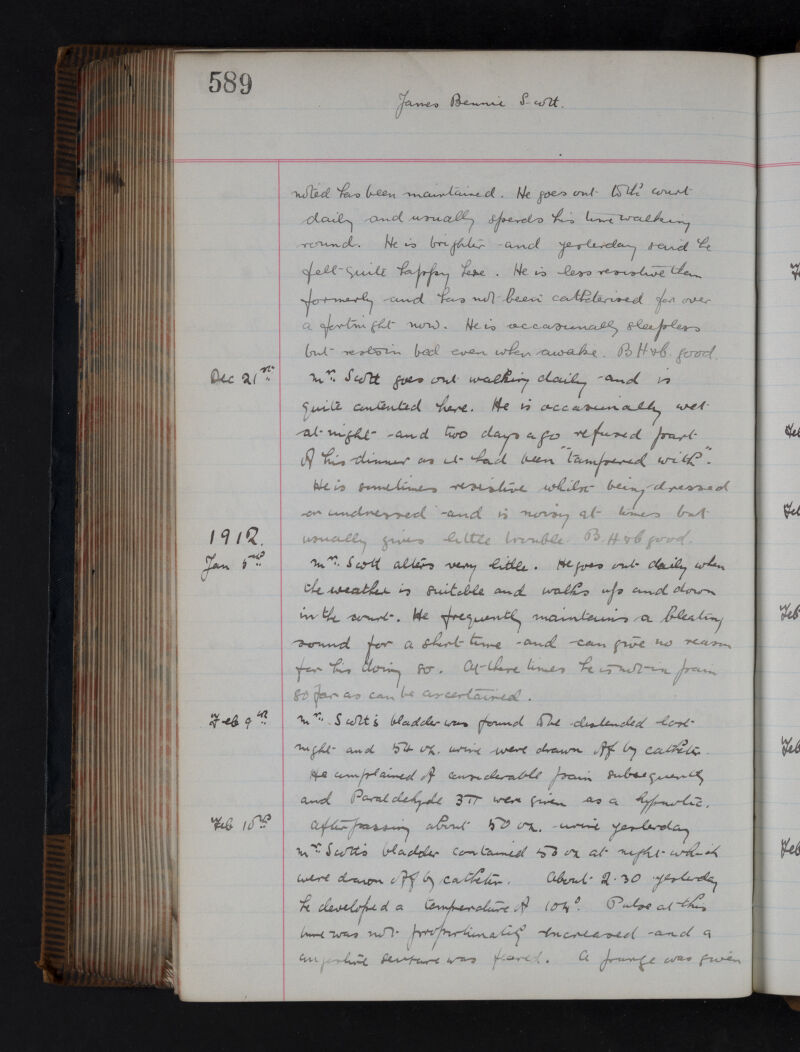 589
James Bennie Scott.
noted has been maintained. He goes out to the court
daily and usually spends his time walking
round. He is brighter and yesterday said he
felt quite happy here. He is less resistive than
formerly and has not been catheterised for over
a fortnight now. He is occasionally sleepless
but rests in bed even when awake. B.H. & b. good.
Dec 21st. Mr. Scott goes out walking daily and is
quite contented here. He is occasionally wet
at night and two days ago refused part
of his dinner as it had been "tampered with".
He is sometimes resistive whilst being dressed
or undressed and is noisy at times but
usually gives little trouble. B.H. & b good.
1912.
Jan 5th. Mr. Scott alters very little. He goes out daily when
the weather is suitable and walks up and down
in the court. He frequently maintains a bleating
sound for a short time and can give no reason
for his doing so. At these times he is not in pain
so far as can be ascertained.
Feb 9th. Mr. Scott's bladder was found to be distended last
night and 54 oz. urine were drawn off by catheter.
He complained of considerable pain subsequently
and Paraldehyde ʒii were given as a hypnotic.
Feb 10th. After passing about 50 oz. urine yesterday
Mr. Scott's bladder contained 53 oz at night which
were drawn off by catheter. About 2.30 yesterday
he developed a temperature of 104°. Pulse at this
time was not proportionately increased and a
seizure was feared. A purge was given
Feb
Feb
Feb